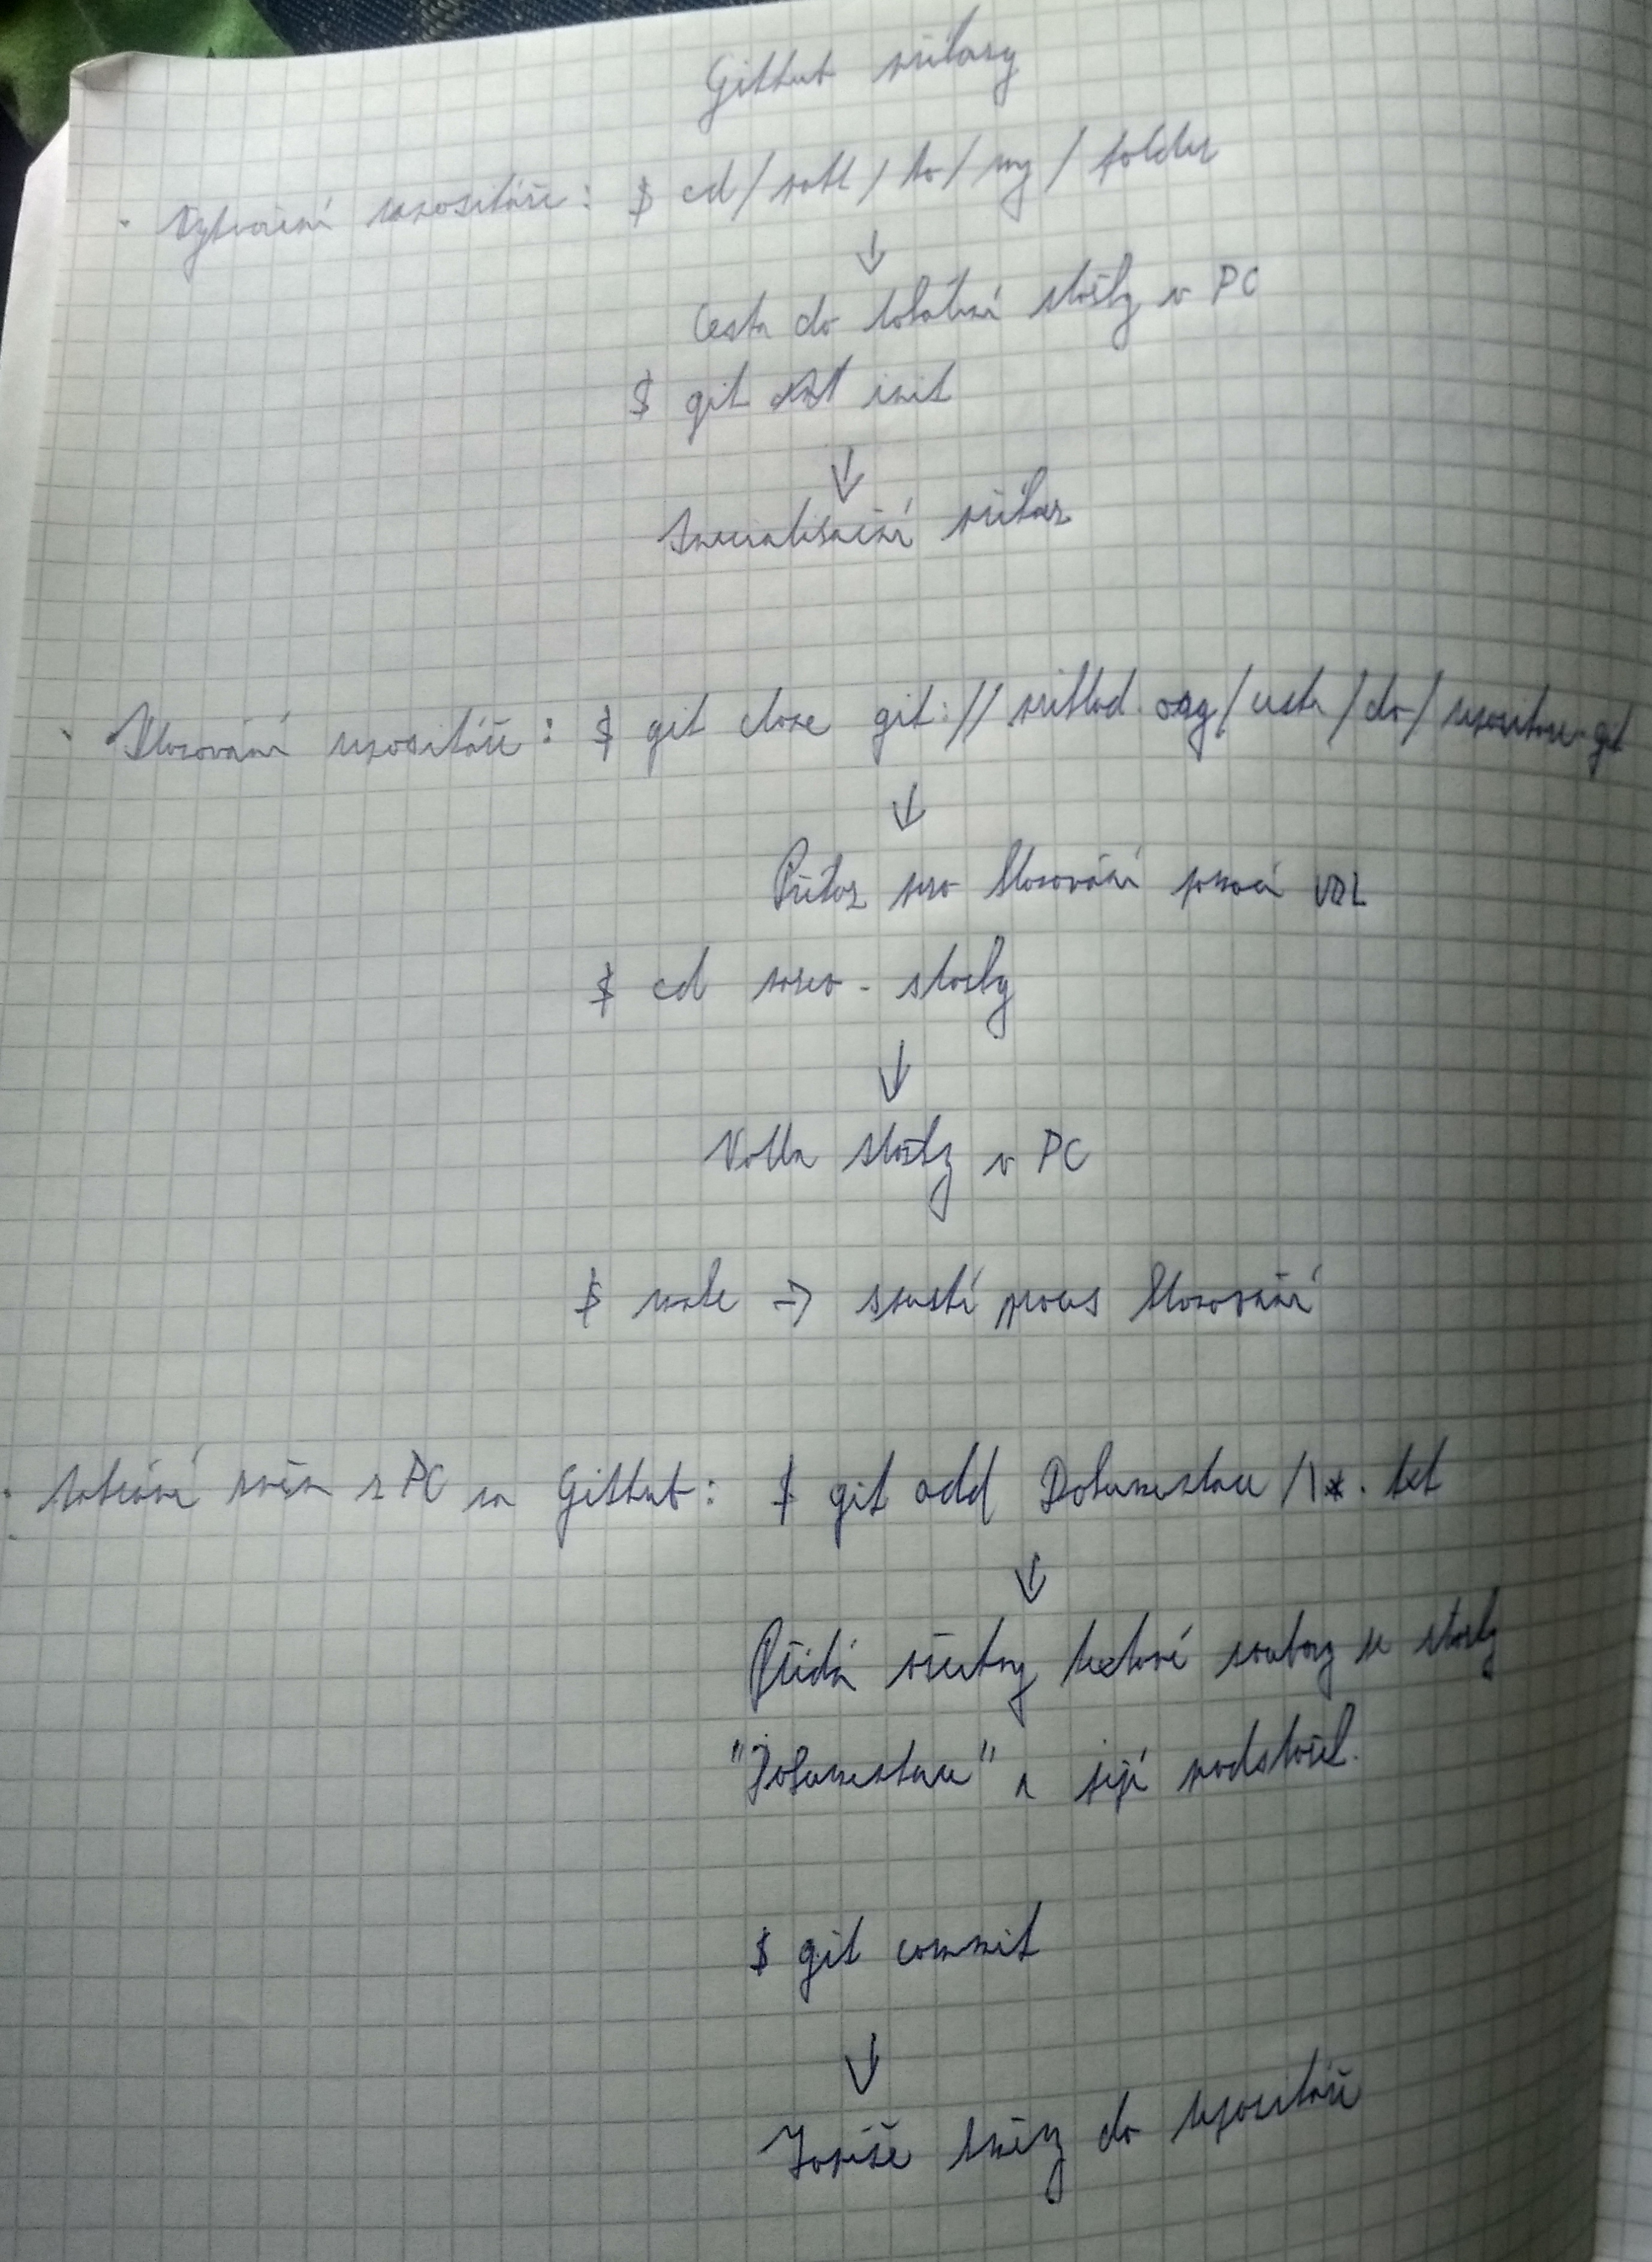 Github příkazy
· Vytvoření repositáře: $ cd/path/to/my/folder
↓
Cesta do lokální složky v PC
$ git init
↓
Specializační příkaz
· Klonování repositáře: $ git clone git://priklad.org/cesta/do/repositare.git
↓
Příkaz pro klonování pomocí URL
$ cd nazev-slozky
↓
Volba složky v PC
$ make => spustí proces klonování
· změn z PC na Github: $ git add Dokumentace/\*.txt
↓
Přidá všechny textové soubory ze složky
"Dokumentace" a její podsložek.
$ git commit
↓
Zapíše změny do repositáře